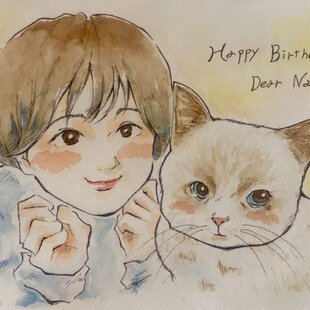 Happy Birth
Dear Na